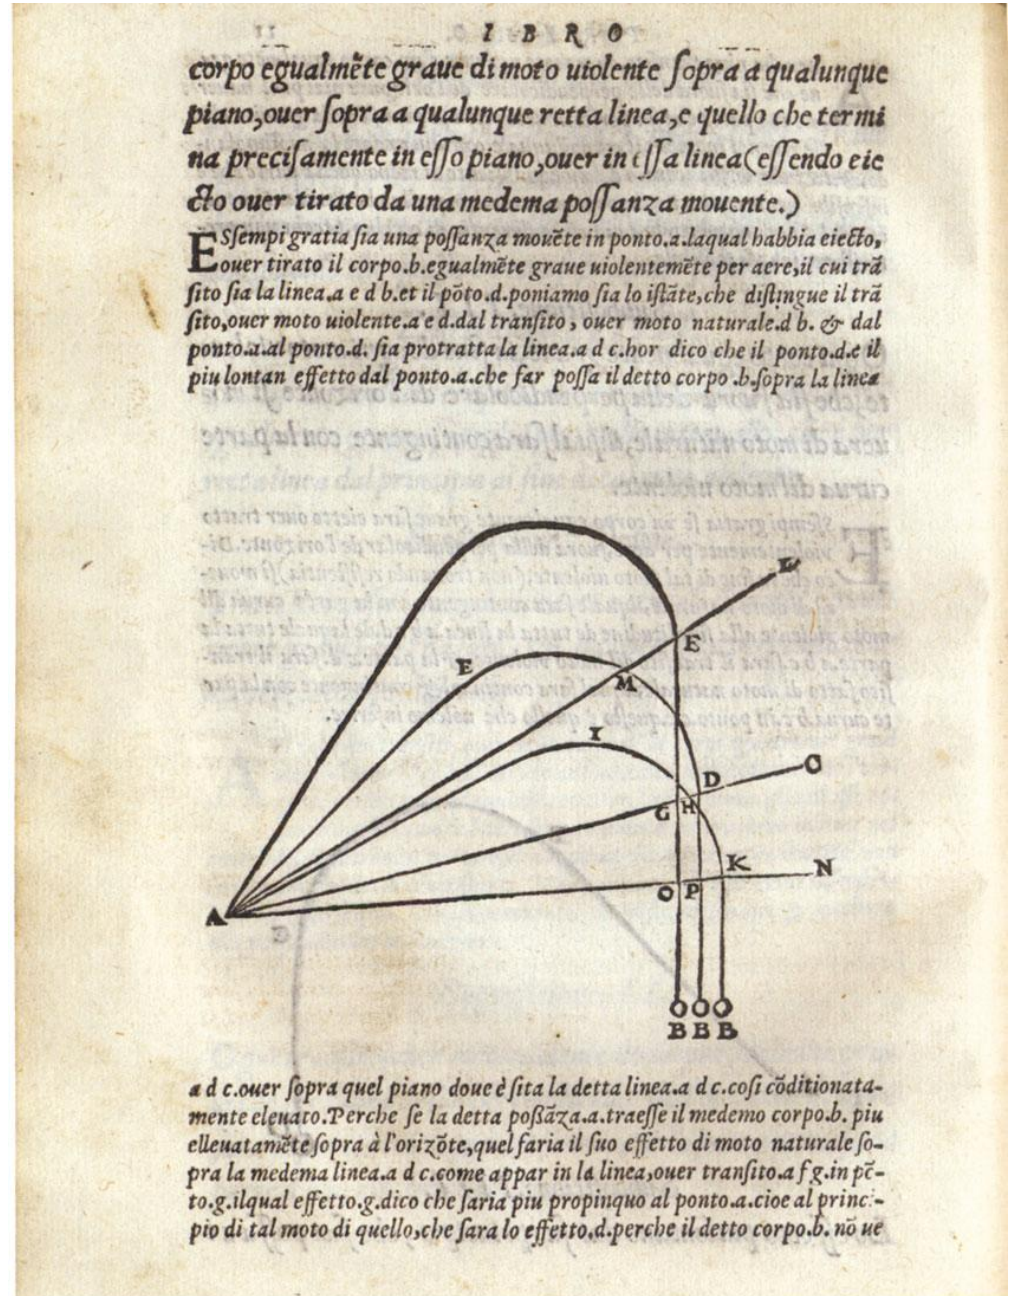 I B R O
corpo egualmẽte graue di moto uiolente ſopra a qualunque
piano,ouer ſopra a qualunque retta linea,e quello che termi
na preciſamente in eſſo piano,ouer in eſſa linea(eſſendo eie
cto ouer tirato da una medema poſſanza mouente.)
ESſempi gratia ſia una poſſanza mouẽte in ponto.a.laqual habbia eiecto,
ouer tirato il corpo.b.egualmẽte graue uiolentemẽte per aere,il cui trã
ſito ſia la linea.a e d b.et il põto.d.poniamo ſia lo iſtãte,che diſtingue il trã
ſito,ouer moto uiolente.a e d.dal tranſito, ouer moto naturale.d b. & dal
ponto.a.al ponto.d. ſia protratta la linea.a d c.hor dico che il ponto.d.e il
piu lontan effetto dal ponto.a.che far poſſa il detto corpo .b.ſopra la linea
L
E
E
M
I
C
D
G H
K N
O P
A
B B B
a d c.ouer ſopra quel piano doue è ſita la detta linea.a d c.coſi cõditionata-
mente eleuato.Perche ſe la detta poßãza.a.traeſſe il medemo corpo.b. piu
elleuatamẽte ſopra à l'orizõte,quel faria il ſuo effetto di moto naturale ſo-
pra la medema linea.a d c.come appar in la linea,ouer tranſito.a f g.in põ-
to.g.ilqual effetto.g.dico che ſaria piu propinquo al ponto.a.cioe al princi-
pio di tal moto di quello,che ſara lo effetto.d.perche il detto corpo.b. nõ ue